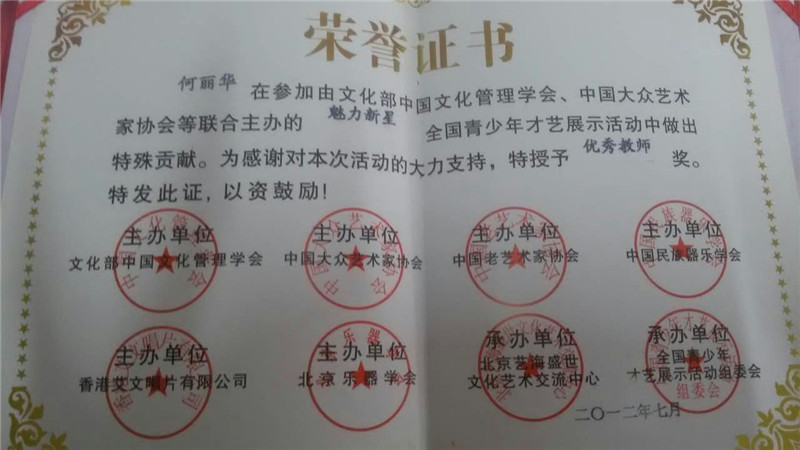 荣誉证书
何丽华 在参加由文化部中国文化管理学会、中国大众艺术
家协会等联合主办的 魅力新星 全国青少年才艺展示活动中做出
特殊贡献。为感谢对本次活动的大力支持，特授予 优秀教师 奖。
特发此证，以资鼓励！
主办单位 主办单位 主办单位 主办单位
文化部中国文化管理学会 中国大众艺术家协会 中国老艺术家协会 中国民族器乐学会
主办单位 主办单位 承办单位 承办单位
香港艾文唱片有限公司 北京乐器学会 北京艺海盛世 全国青少年
文化艺术交流中心 才艺展示活动组委会
组委会
二〇一二年七月